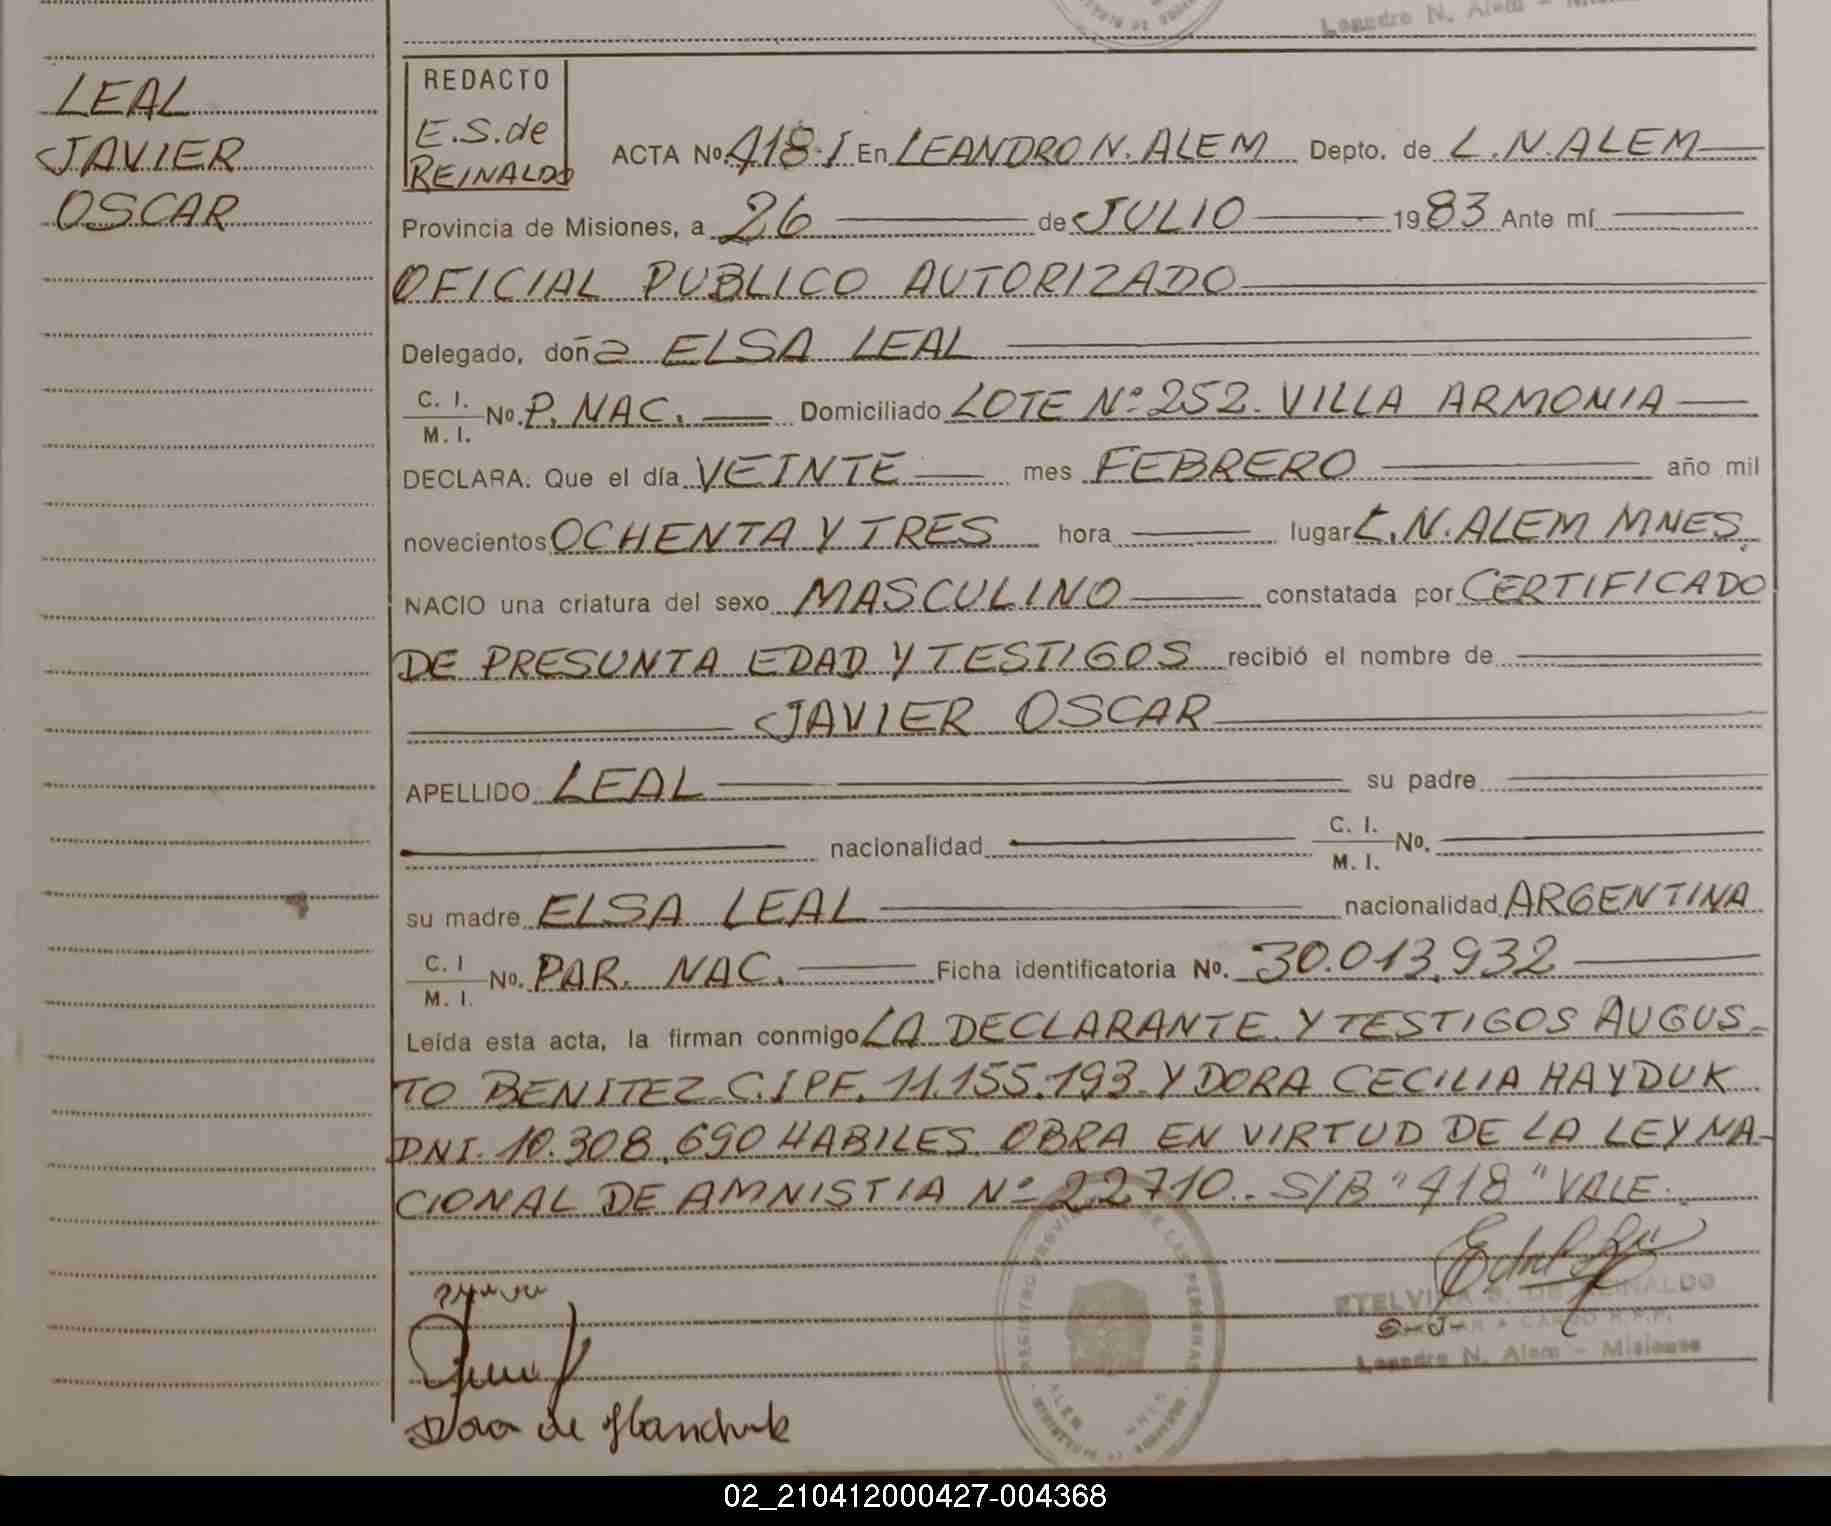 Leandro N. Alem - Misiones
LEAL
JAVIER
OSCAR
REDACTO
E.S.de
REINALDO
ACTA No. 418-I En LEANDRO N. ALEM Depto. de L.N.ALEM
Provincia de Misiones, a 26 de JULIO 1983 Ante mí
OFICIAL PUBLICO AUTORIZADO
Delegado, doña ELSA LEAL
C. I. M. I. No. P. NAC. Domiciliado LOTE Nº 252. VILLA ARMONIA
DECLARA: Que el día VEINTE mes FEBRERO año mil
novecientos OCHENTA Y TRES hora lugar L.N.ALEM MNES.
NACIO una criatura del sexo MASCULINO constatada por CERTIFICADO
DE PRESUNTA EDAD Y TESTIGOS recibió el nombre de
JAVIER OSCAR
APELLIDO LEAL su padre
nacionalidad C. I. M. I. No.
su madre ELSA LEAL nacionalidad ARGENTINA
C. I M. I. No. PAR. NAC. Ficha identificatoria No. 30.013.932
Leída esta acta, la firman conmigo LA DECLARANTE Y TESTIGOS AUGUS-
TO BENITEZ C.I PF. 11.155.193 Y DORA CECILIA HAYDUK
DNI. 10.308.690 HABILES. OBRA EN VIRTUD DE LA LEY NA-
CIONAL DE AMNISTIA Nº 22710.. S/B "418" VALE.
ETELVINA S. DE REINALDO
A CARGO R.P.P.
Leandro N. Alem - Misiones
Dora de
02_210412000427-004368